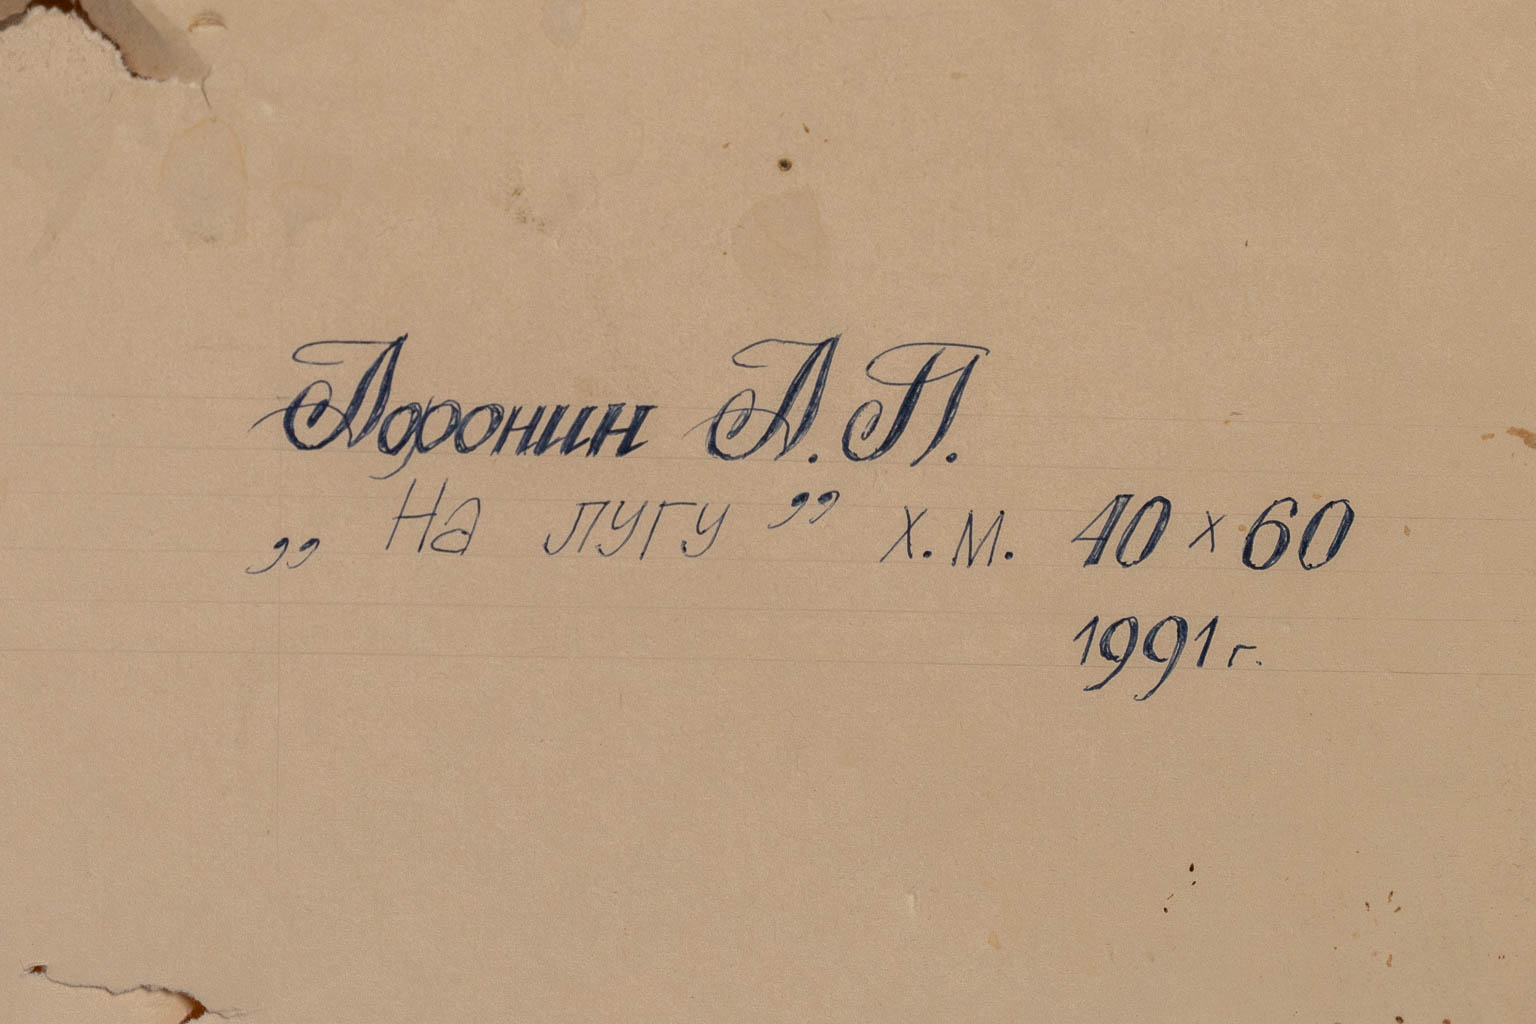 Афонин А.П.
„ На лугу ” х.м. 40 х 60
1991 г.